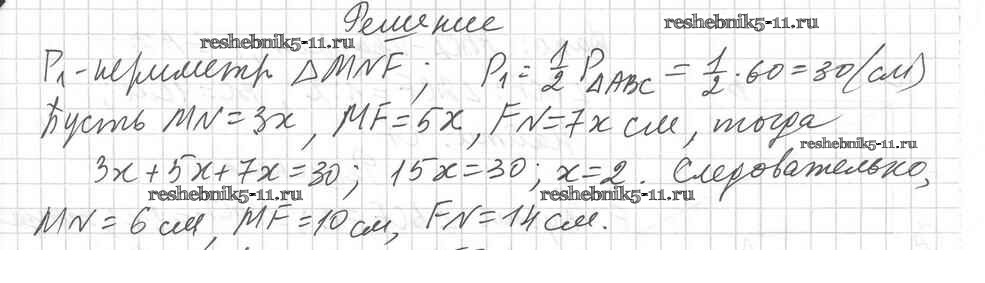 Решение
reshebnik5-11.ru
reshebnik5-11.ru
P₁ - периметр △MNF; P₁ = 1/2 P△ABC = 1/2 · 60 = 30 (см)
Пусть MN = 3x, MF = 5x, FN = 7x см, тогда
reshebnik5-11.ru
3x + 5x + 7x = 30; 15x = 30; x = 2. Следовательно,
reshebnik5-11.ru
reshebnik5-11.ru
MN = 6 см, MF = 10 см, FN = 14 см.